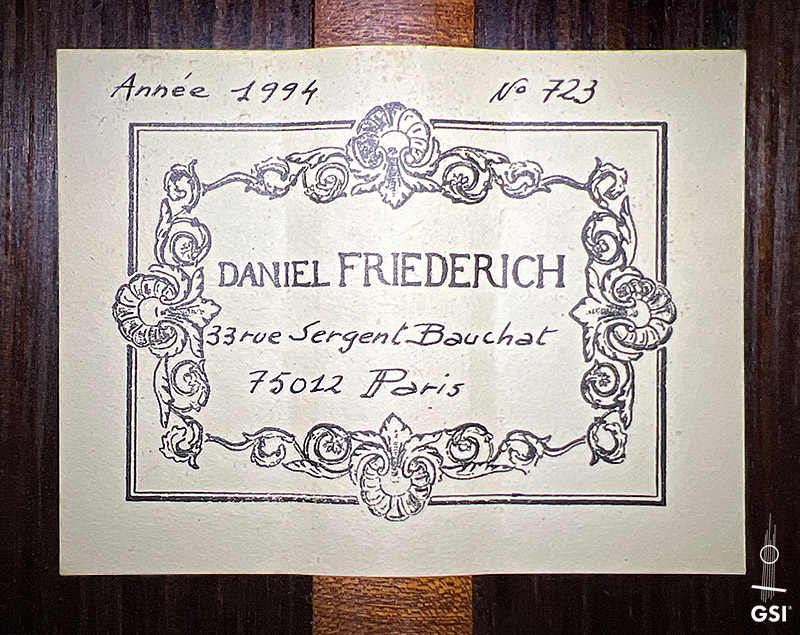 Année 1994 No 723
DANIEL FRIEDERICH
33 rue Sergent Bauchat
75012 Paris
GSI